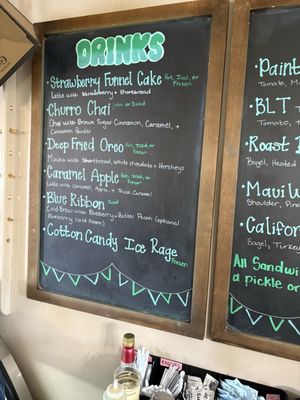 DRINKS
• Strawberry Funnel Cake Hot, Iced, or Frozen
Latte with Strawberry + Shortbread
• Churro Chai Hot or Iced
Chai with Brown Sugar Cinnamon, Caramel, +
Cinnamon Powder
• Deep Fried Oreo Hot, Iced, or Frozen
Mocha with Shortbread, white chocolate + Hersheys
• Caramel Apple Hot, Iced, or Frozen
Latte with Caramel, Apple, + Thick Caramel
• Blue Ribbon Iced
Cold Brew with Blueberry + Butter Pecan (optional
Blueberry Cold Foam)
• Cotton Candy Ice Rage
Frozen
• Paint
Tomato, M
• BLT
Tomato
• Roast
Bagel, Heated
• Maui W
Shoulder,
• Califor
Bagel, Turkey
All Sandwi
a pickle or